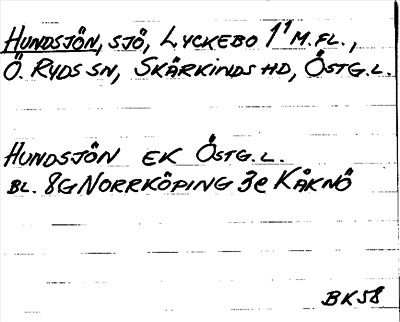 HUNDSJÖN, SJÖ, LYCKEBO 1¹ M.FL.,
Ö. RYDS SN, SKÄRKINDS HD, ÖSTG.L.
HUNDSJÖN EK ÖSTG.L.
BL. 8G NORRKÖPING 3e KÅKNÖ
BK58